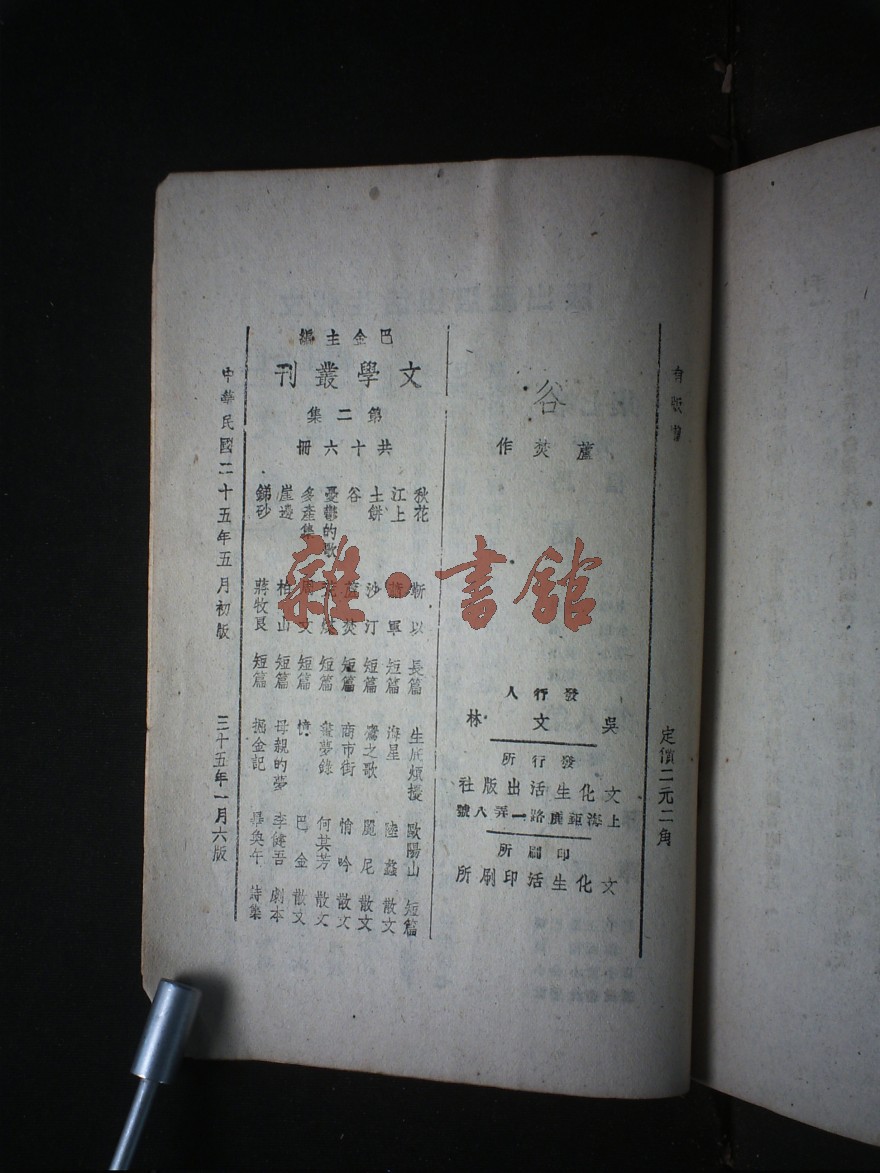 有版權
定價二元二角
谷
蘆焚作
發行人
吳文林
發行所
文化生活出版社
上海鉅鹿路一弄八號
印刷所
文化生活印刷所
巴金主編
文學叢刊
第二集
共十六冊
秋花 靳以 長篇
江上 蕭軍 短篇
土餅 沙汀 短篇
谷 蘆焚 短篇
憂鬱的歌 短篇
多產集 周文 短篇
崖邊 柏山 短篇
銻砂 蔣牧良 短篇
生底煩擾 歐陽山 短篇
海星 陸蠡 散文
鷹之歌 麗尼 散文
商市街 悄吟 散文
畫夢錄 何其芳 散文
憶 巴金 散文
母親的夢 李健吾 劇本
掘金記 畢奐午 詩集
中華民國二十五年五月初版
三十五年一月六版
雜·書館